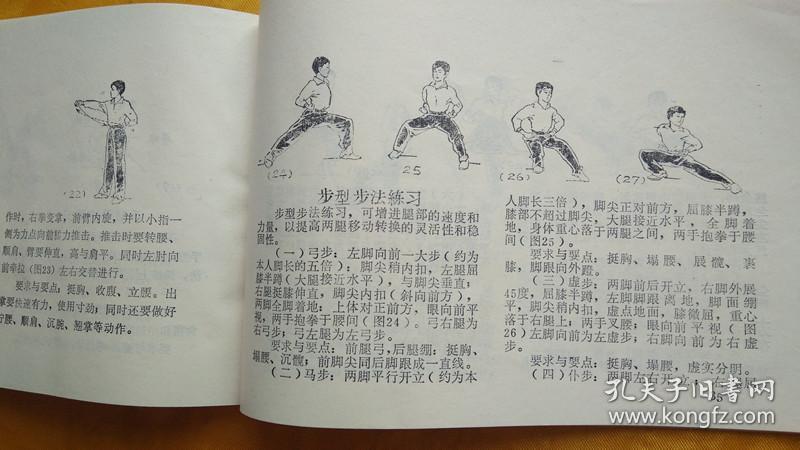 (22)
作时，右拳变掌，前臂内旋，并以小指一
侧为力点向前猛力推击。推击时要转腰、
顺肩、臂要伸直，高与肩平。同时左肘向
前牵拉（图23）左右交替进行。
要求与要点：挺胸、收腹、立腰。出
掌要快速有力，使用寸劲；同时还要做好
拧腰、顺肩、沉腕、翘掌等动作。
(24)
25
(26)
(27)
步型步法练习
步型步法练习，可增进腿部的速度和
力量，以提高两腿移动转换的灵活性和稳
固性。
（一）弓步：左脚向前一大步（约为
本人脚长的五倍）；脚尖稍内扣，左腿屈
膝半蹲（大腿接近水平），与脚尖垂直；
右腿挺膝伸直，脚尖内扣（斜向前方），
两脚全脚着地；上体对正前方，眼向前平
视，两手抱拳于腰间（图24）。弓右腿为
右弓步；弓左腿为左弓步。
要求与要点：前腿弓，后腿绷；挺胸、
塌腰、沉髋；前脚尖同后脚跟成一直线。
（二）马步：两脚平行开立（约为本
人脚长三倍），脚尖正对前方，屈膝半蹲，
膝部不超过脚尖，大腿接近水平，全脚着
地，身体重心落于两腿之间，两手抱拳于腰
间（图25）。
要求与要点：挺胸、塌腰、展髋、裹
膝，脚跟向外蹬。
（三）虚步：两脚前后开立，右脚外展
45度，屈膝半蹲，左脚脚跟离地，脚面绷
平，脚尖稍内扣，虚点地面，膝微屈，重心
落于右腿上；两手叉腰；眼向前平视（图
26）左脚向前为左虚步；右脚向前为右虚
步。
要求与要点：挺胸、塌腰，虚实分明。
（四）仆步：两脚左右开立，右腿屈
孔夫子旧书网
www.kongfz.com